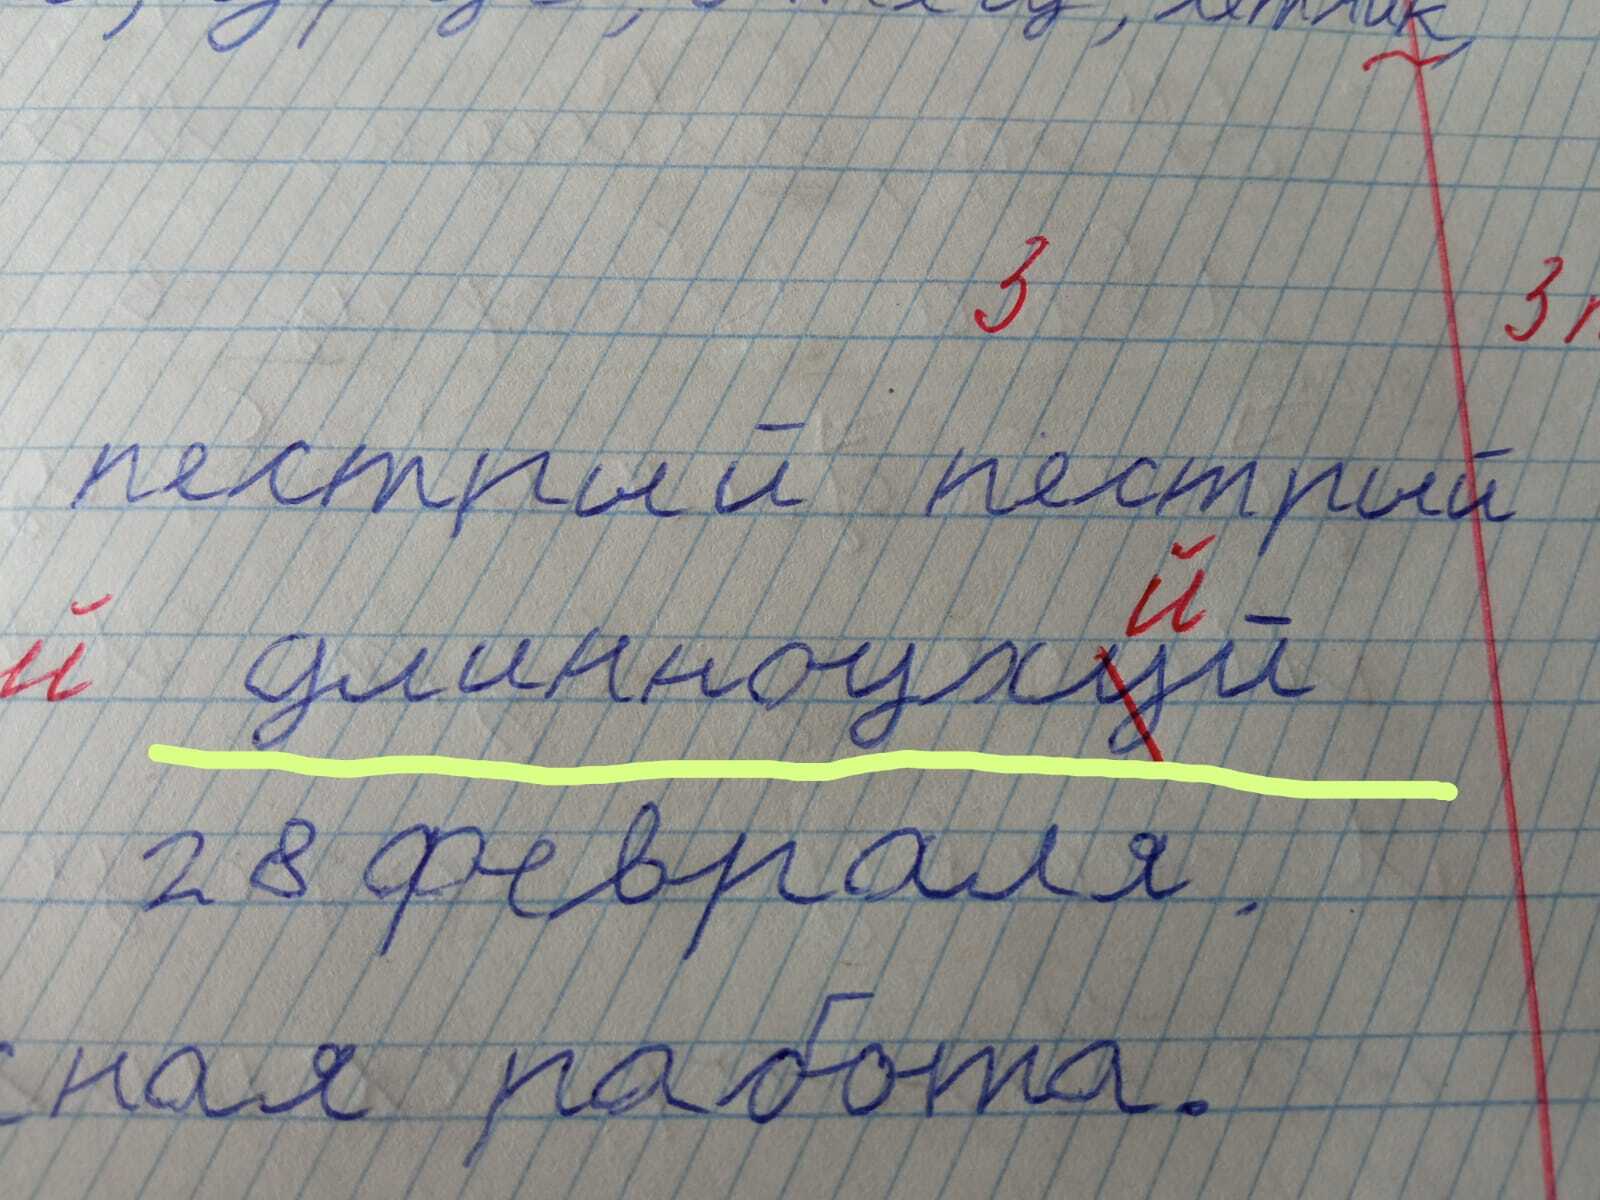 летник,
3 3
пестрый пестрый
й
й длинноухуй
28 февраля.
ная работа.